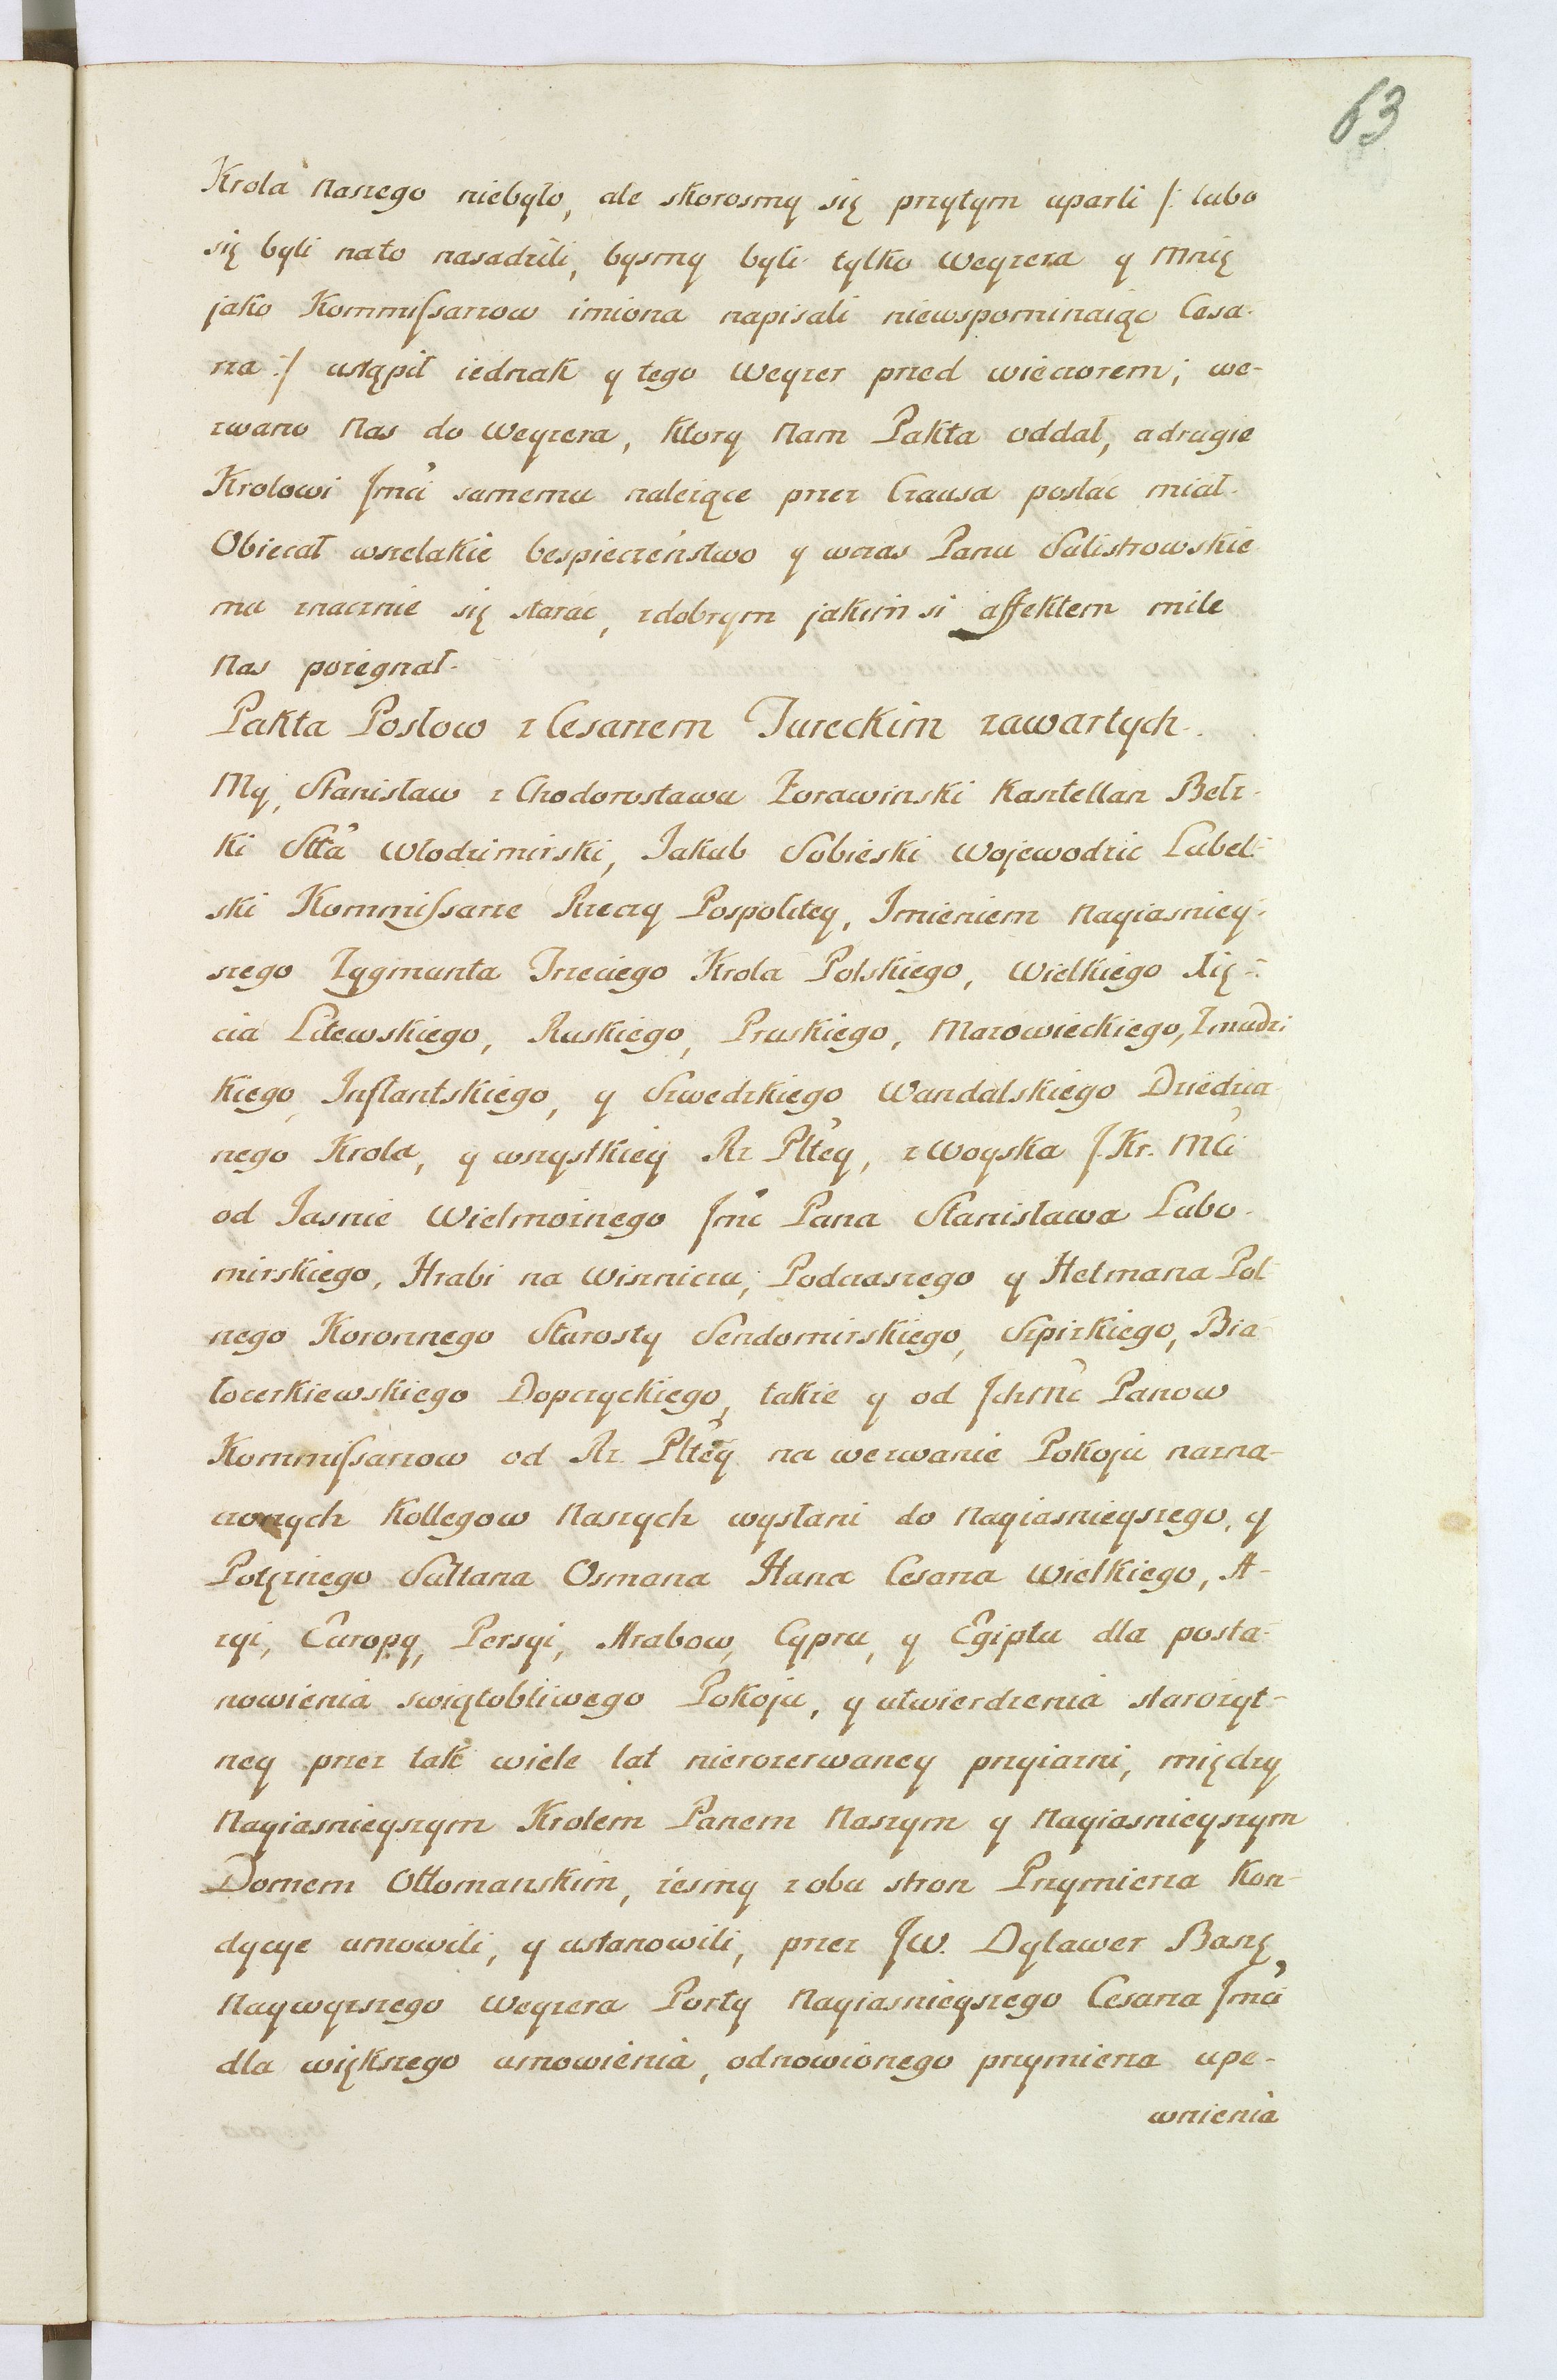 63
Krola naszego niebyło, ale skorosmy się przytym uparli /: lubo
się byli nato nasadzili, bysmy byli tylko Wezyra y Mnię
jako Kommissarzow imiona napisali niewspominaiąc Cesa-
rza :/ ustąpił iednak y tego Wezyr przed wieczorem; we-
zwano Nas do Wezyra, ktory Nam Pakta oddał, a drugie
Krolowi Jmci samemu należące przez Czausa posłac miał.
Obiecał wszelakie bespieczenstwo y wczas Panu Sulistrowskie
mu znacznie się starac, z dobrym jakimsi affektem mile
Nas pożegnał.
Pakta Posłow z Cesarzem Tureckim zawartych.
My, Stanisław z Chodorostawu Żorawinski Kasztellan Bełz-
ki Stta Włodzimirski, Jakub Sobieski Wojewodzic Lubel-
ski Kommissarze Rzeczy Pospolitey, Imieniem Nayiasniey-
szego Zygmunta Trzeciego Krola Polskiego, Wielkiego Xię-
cia Litewskiego, Ruskiego, Pruskiego, Mazowieckiego, Zmudz
kiego, Inflantskiego, y Szwedzkiego Wandalskiego Dziedzia
nego Krola, y wszystkiey Rz Pltey, z Woyska J. Kr. Mci
od Jasnie Wielmożnego Jmc Pana Stanisława Lubo-
mirskiego, Hrabi na Wisniczu, Podczaszego y Hetmana Pol
nego Koronnego Starosty Sendomirskiego, Szpizkiego, Bia
łocerkiewskiego Dopczyckiego, także y od Jchmc Panow
Kommissarzow od Rz Pltey na wezwanie Pokoju nazna-
czonych Kollegow Naszych wysłani do Nayiasnieyszego, y
Potężnego Sułtana Osmana Hana Cesarza Wielkiego, A-
zyi, Europy, Persyi, Arabow, Cypru, y Egiptu dla posta-
nowienia swiętobliwego Pokoju, y utwierdzenia starożyt-
ney przez tak wiele lat nierozerwaney przyiazni, między
Nayiasnieyszym Krolem Panem Naszym y Nayiasnieyszym
Domem Ottomanskim, żesmy z obu stron Przymierza Kon-
dycye umowili, y ustanowili, przez JW. Dylawer Baszę
Naywyższego Wezyra Porty Nayiasnieyszego Cesarza Jmci
dla większego umowienia, odnowionego przymierza upe-
wnienia